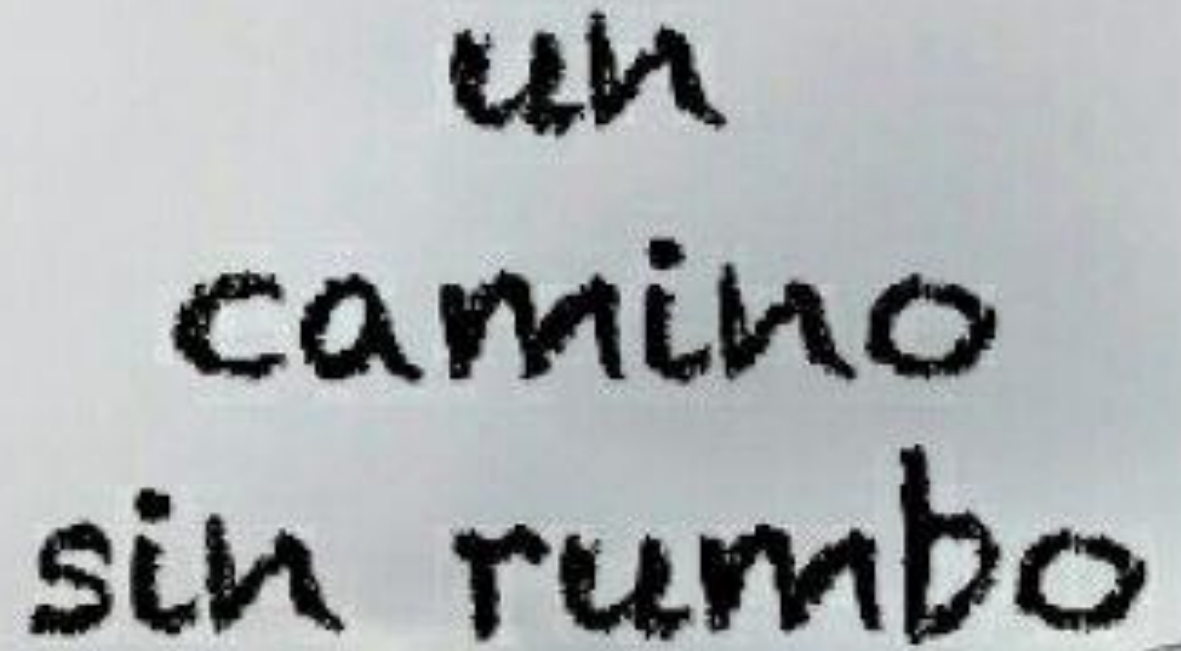 un
camino
sin rumbo